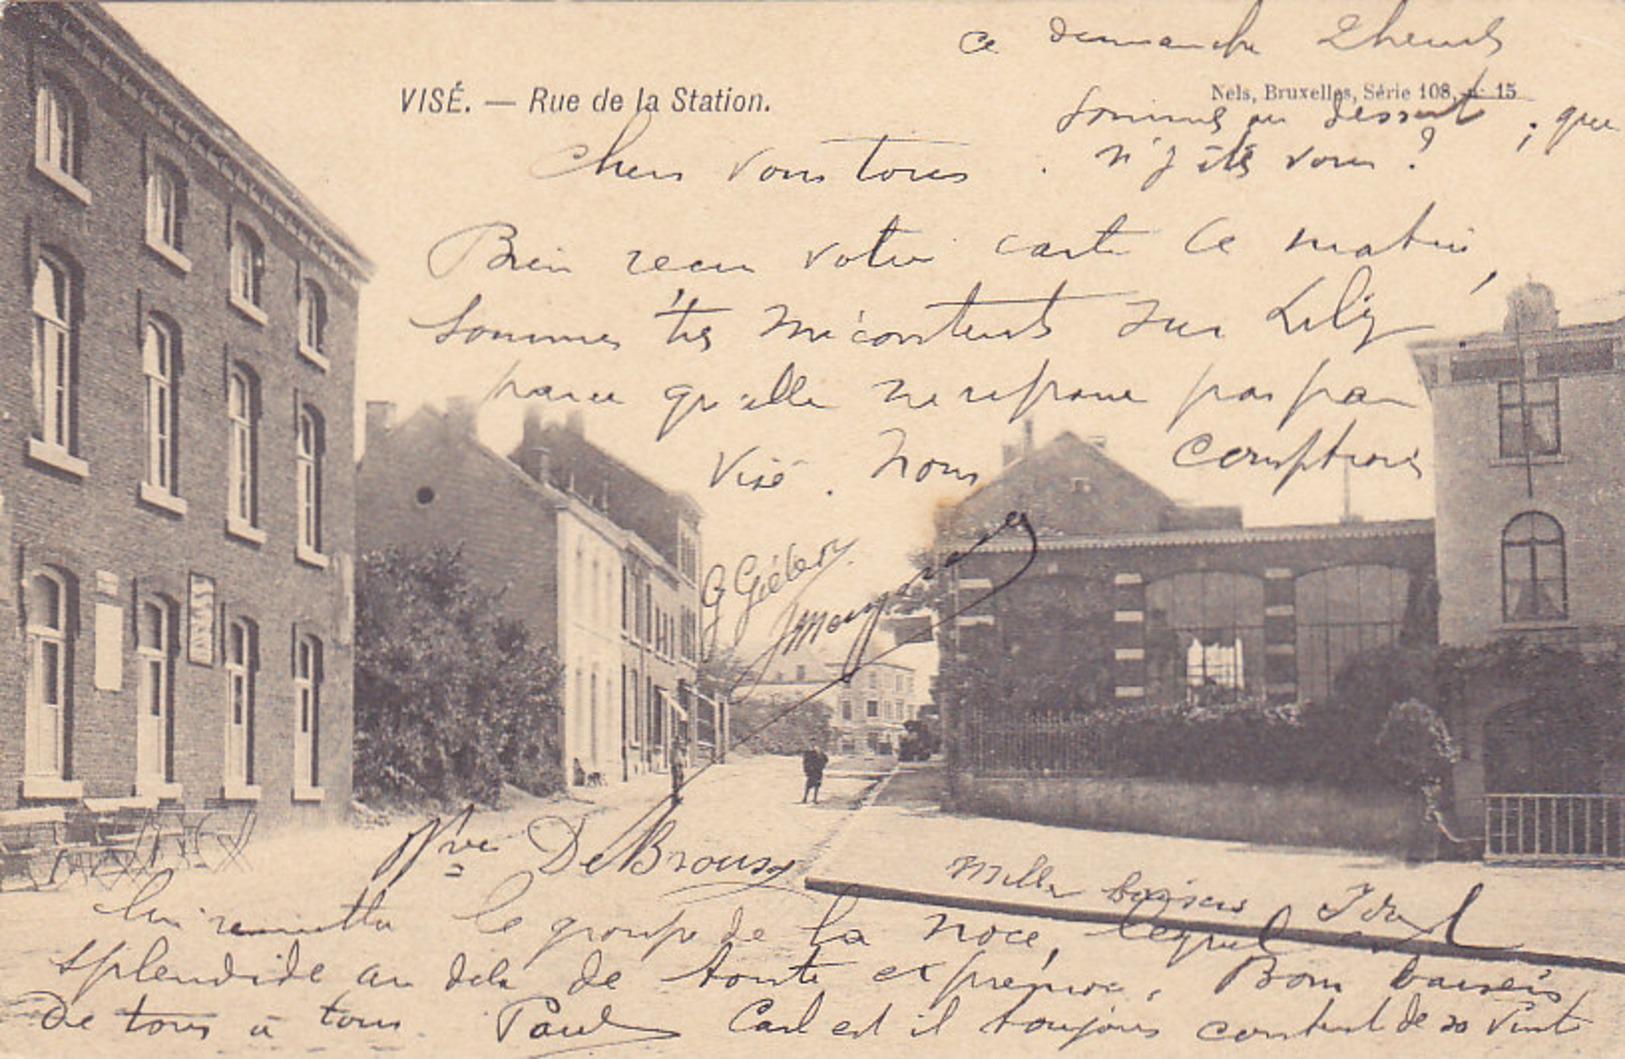 ce dimanche 2 heures
VISÉ. — Rue de la Station.
Nels, Bruxelles, Série 108, n° 15
sommes au dessert, que
n'y êtes vous ?
Chers vous tous
Bien reçu votre carte ce matin,
sommes très mécontents sur Lily
parce qu'elle ne passe pas par
Visé. Nous comptions
G Gielen
Vve De Brouxy
Mille baisers
lui remettre le groupe de la noce, lequel est
splendide au delà de toute expression. Bons baisers
de tous à tous. Paul Carl est il toujours content de vint